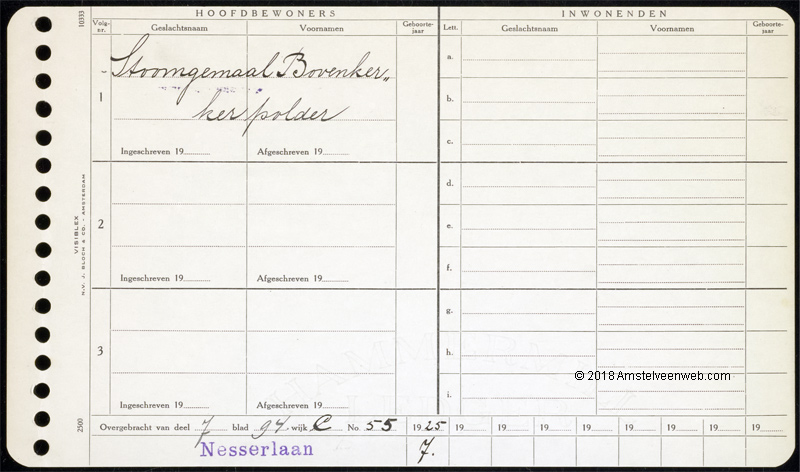 HOOFDBEWONERS INWONENDEN
10333 Volg-nr. Geslachtsnaam Voornamen Geboorte-jaar Lett. Geslachtsnaam Voornamen Geboorte-jaar
1 Stoomgemaal Bovenker„
ker polder
Ingeschreven 19 Afgeschreven 19
a.
b.
c.
2
Ingeschreven 19 Afgeschreven 19
d.
e.
f.
3
Ingeschreven 19 Afgeschreven 19
g.
h.
i.
VISIBLEX
N.V. J. BLOCH & CO. - AMSTERDAM
2500
© 2018 Amstelveenweb.com
Overgebracht van deel 7 blad 94 wijk C No. 55 1925 19 19 19 19 19 19 19 19
Nesserlaan 7.